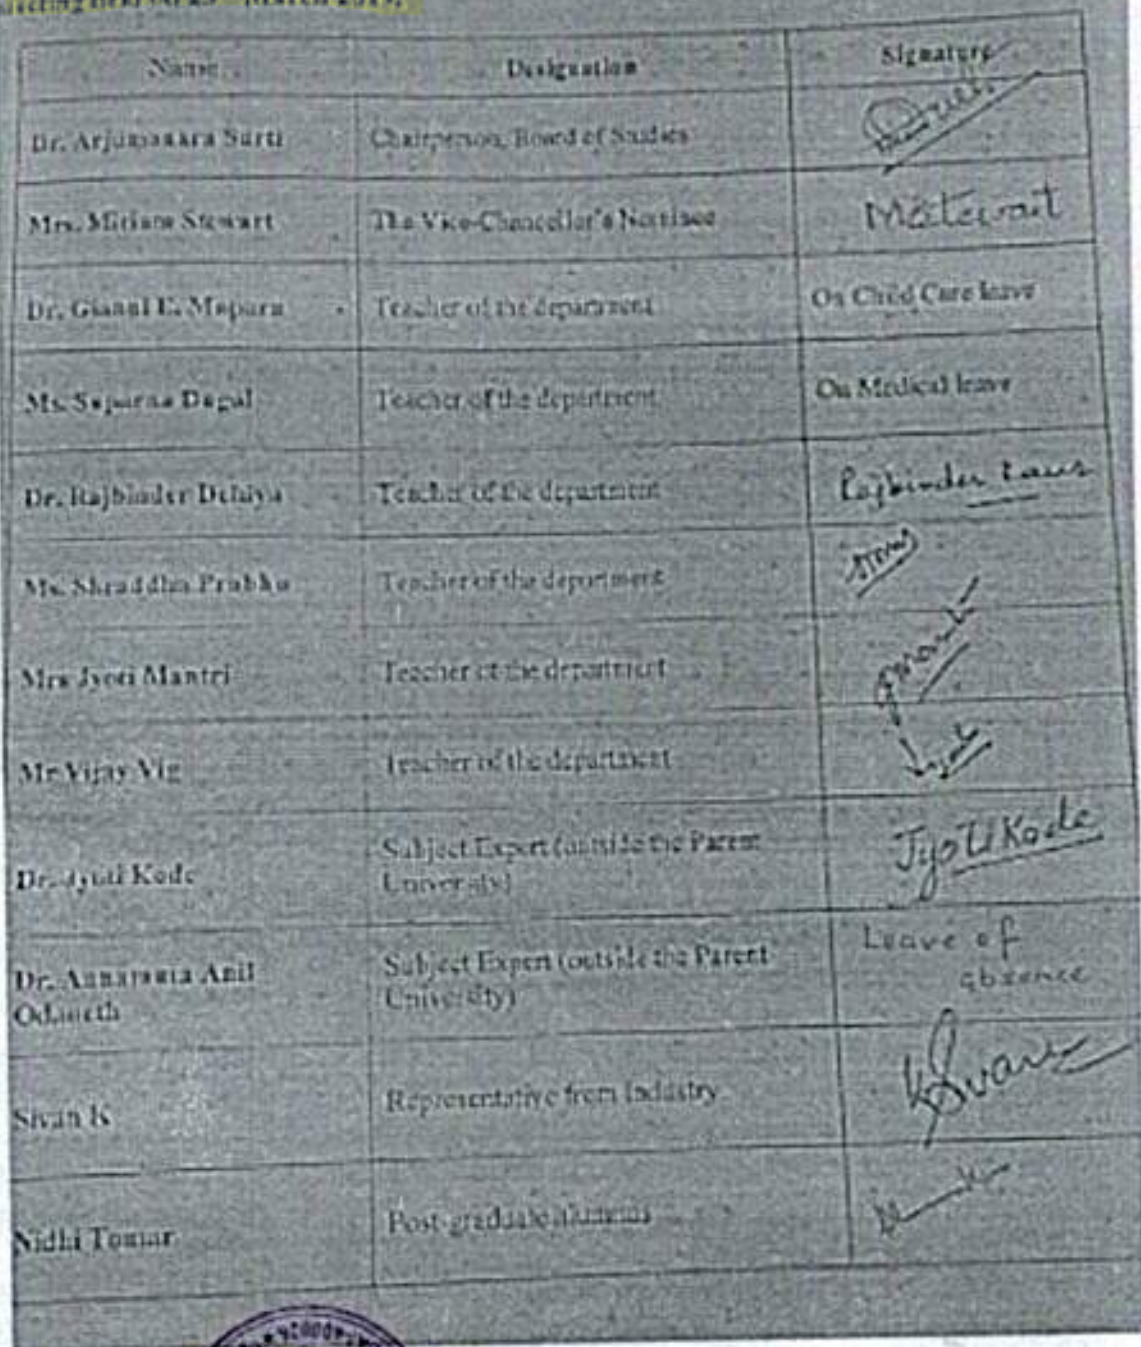 Name Designation Signature
Dr. Arjumanara Surti Chairperson, Board of Studies
Mrs. Miriam Stewart The Vice-Chancellor's Nominee
Dr. Gianni E. Mapara Teacher of the department On Child Care leave
Ms. Suparna Dugal Teacher of the department On Medical leave
Dr. Rajbinder Dehiya Teacher of the department Rajbinder Kaur
Ms. Shraddha Prabhu Teacher of the department
Mrs Jyoti Mantri Teacher of the department
Mr Vijay Vig Teacher of the department
Dr. Jyoti Kode Subject Expert (outside the Parent University) Jyoti Kode
Dr. Anil Odaneth Subject Expert (outside the Parent University) Leave of absence
Sivan K Representative from Industry
Nidhi Tomar Post-graduate alumnus